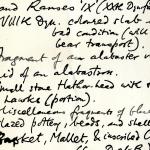 and Ramses IX (XXth Dyn
XVIIIth Dyn. coloured slab
bad condition (will
bear transport).
Fragment of an alabaster v
lid of an alabastron.
Small stone Hathor head with
Hawks (portion)
Miscellaneous fragments of blue
glazed pottery, beads, and shells
Basket, Mallet, & inscribed C